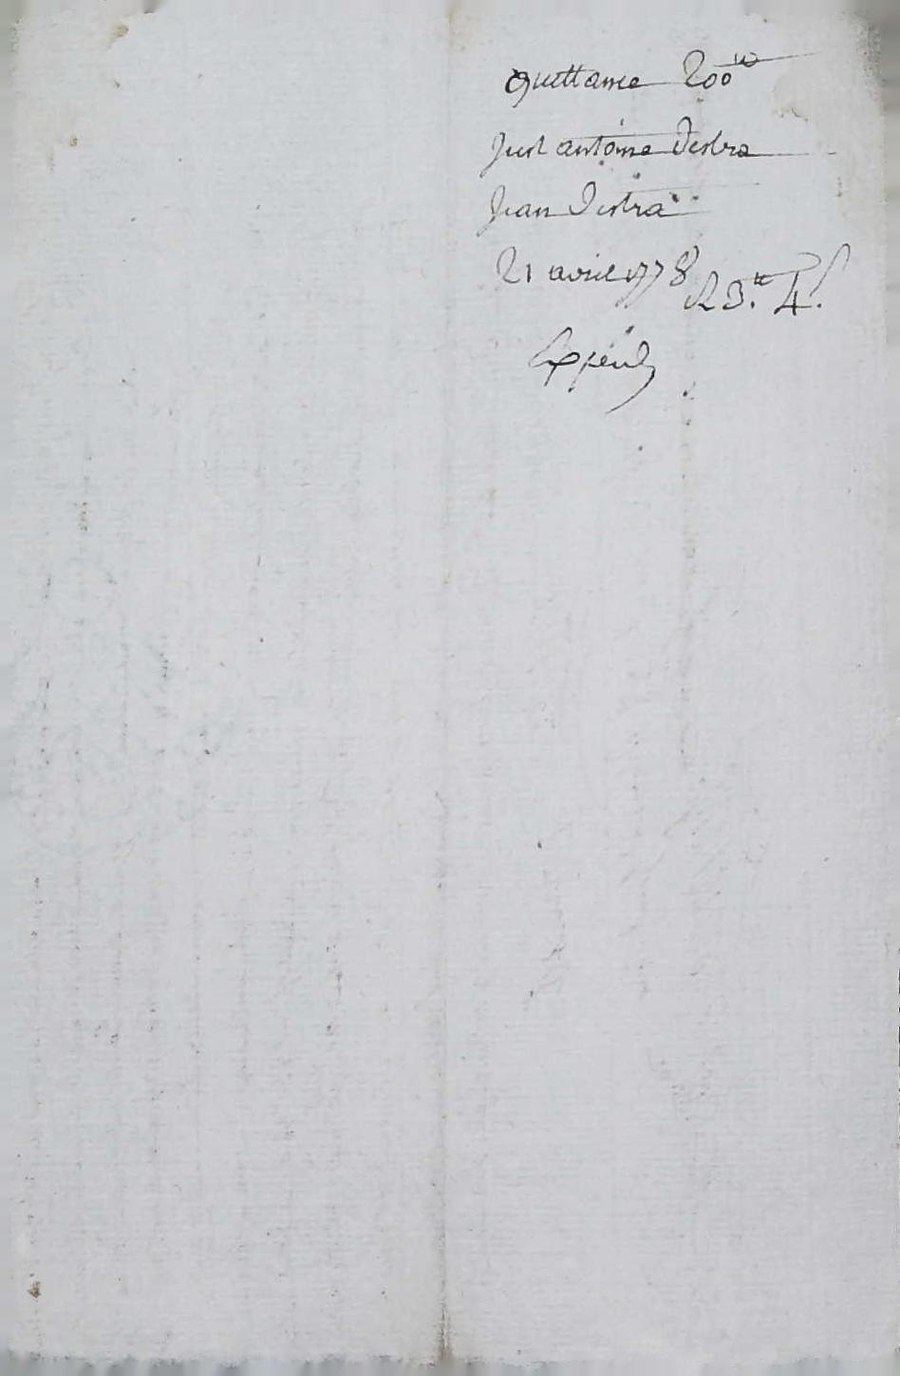 quittance 200ᵗᵗ
Just antoine Destra
Jean Destra
21 avril 1778
23.ᵗᵗ 4.ˢ
Expéd